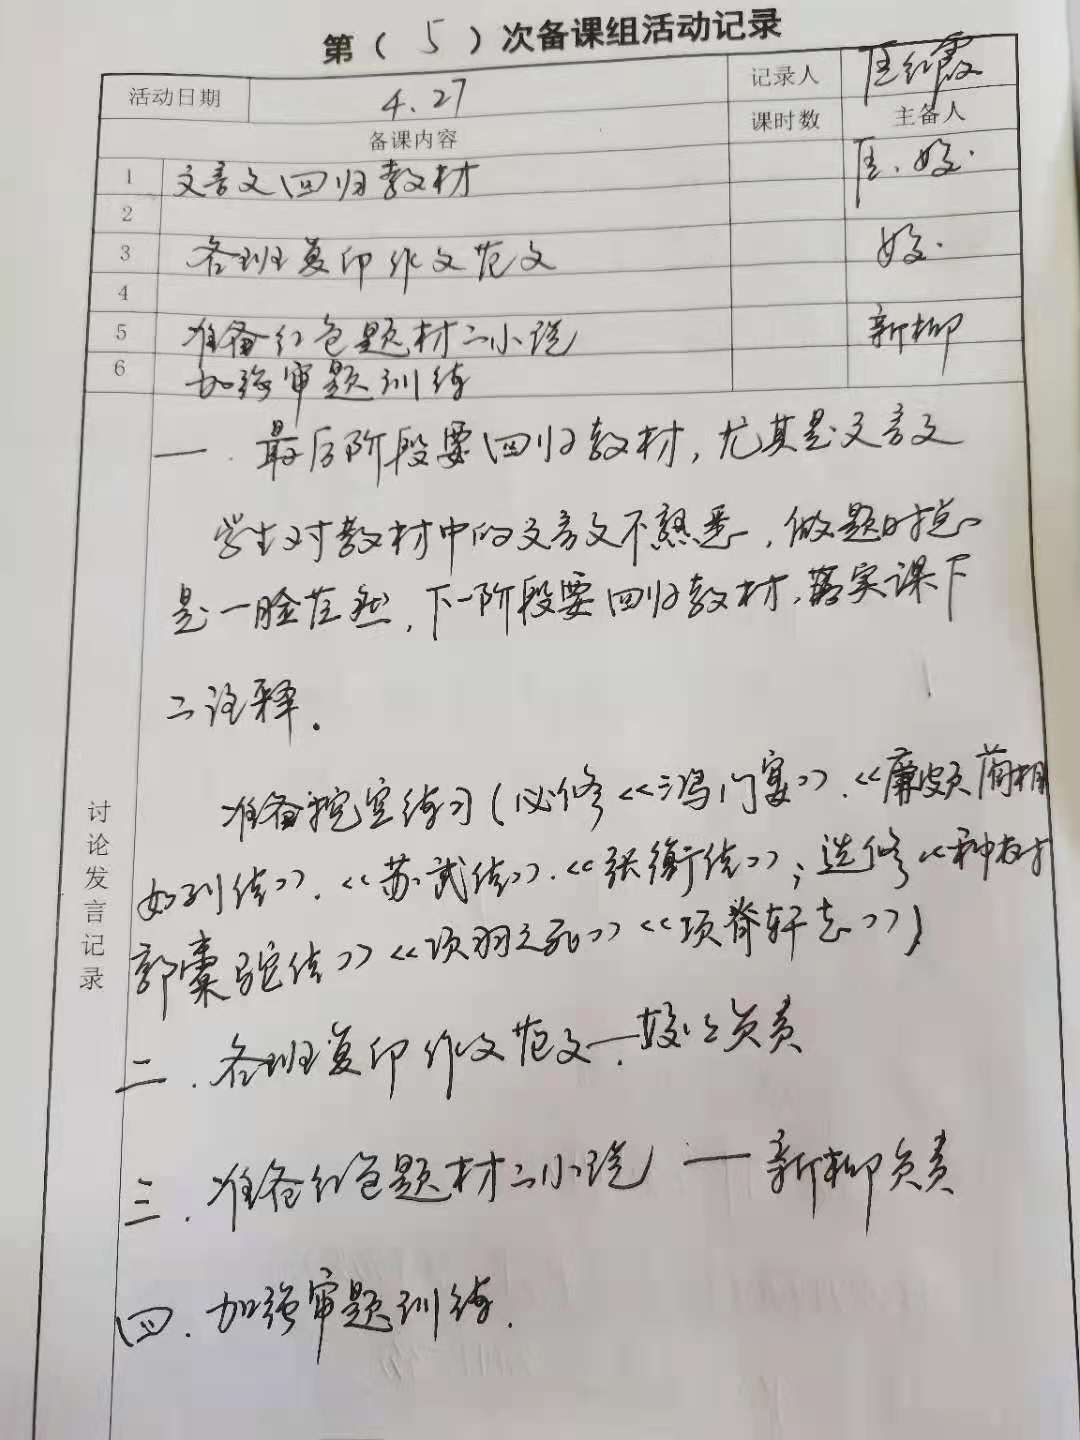 第（5）次备课组活动记录
活动日期 4.27 记录人 匡红霞
备课内容 课时数 主备人
1 文言文回归教材 匡、姣.
2
3 各班复印作文范文 姣.
4
5 准备红色题材之小说 新柳
6 加强审题训练
讨论发言记录
一. 最后阶段要回归教材, 尤其是文言文
学生对教材中的文言文不熟悉, 做题时总
是一脸茫然, 下一阶段要回归教材, 落实课下
之注释.
准备挖空练习(必修《鸿门宴》.《廉颇蔺相
如列传》.《苏武传》.《张衡传》; 选修《种树
郭橐驼传》《项羽之死》《项脊轩志》)
二. 各班复印作文范文—姣负责
三. 准备红色题材之小说 — 新柳负责
四. 加强审题训练.